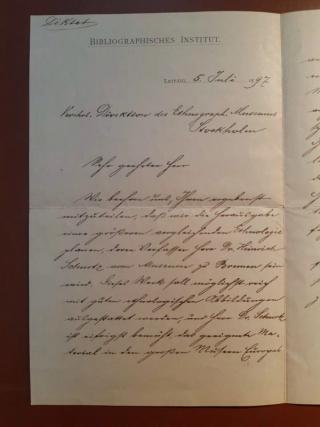 Diktat
BIBLIOGRAPHISCHES INSTITUT.
LEIPZIG, 5. Juli 1897
Verehrl. Direktion des Ethnograph. Museums
Stockholm
Sehr geehrter Herr
Wir beehren uns, Ihnen ergebenst
mitzuteilen, daß wir die Herausgabe
eines größeren vergleichenden Ethnologie
planen, deren Verfasser Herr Dr. Heinrich
Schurtz vom Museum zu Bremen sein
wird. Dieses Werk soll möglichst reich
mit guten ethnologischen Abbildungen
ausgestattet werden, und Herr Dr. Schurtz
ist eifrigst bemüht, das geeignete Ma-
terial in den großen Museen Europas